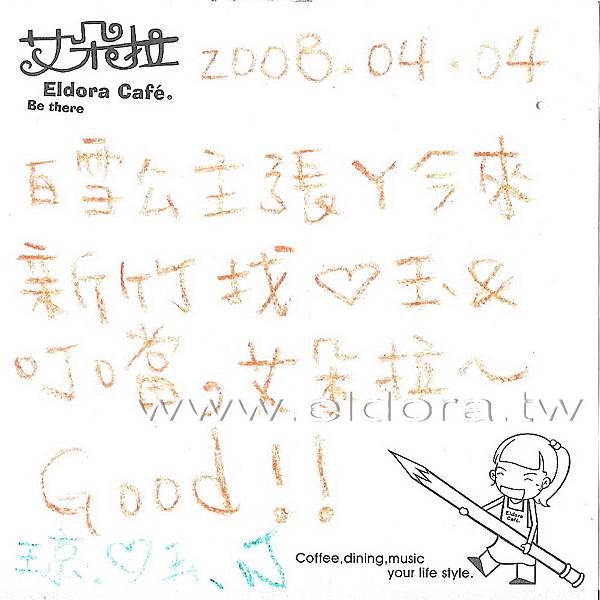 艾朵拉
Eldora Café。
Be there
2008.04.04
白雪公主張丫今來
新竹找♡玉&
叮噹。艾朵拉～
www.eldora.tw
Good!!
琼.♡玉、叮
Eldora
Café.
Coffee,dining,music
your life style.